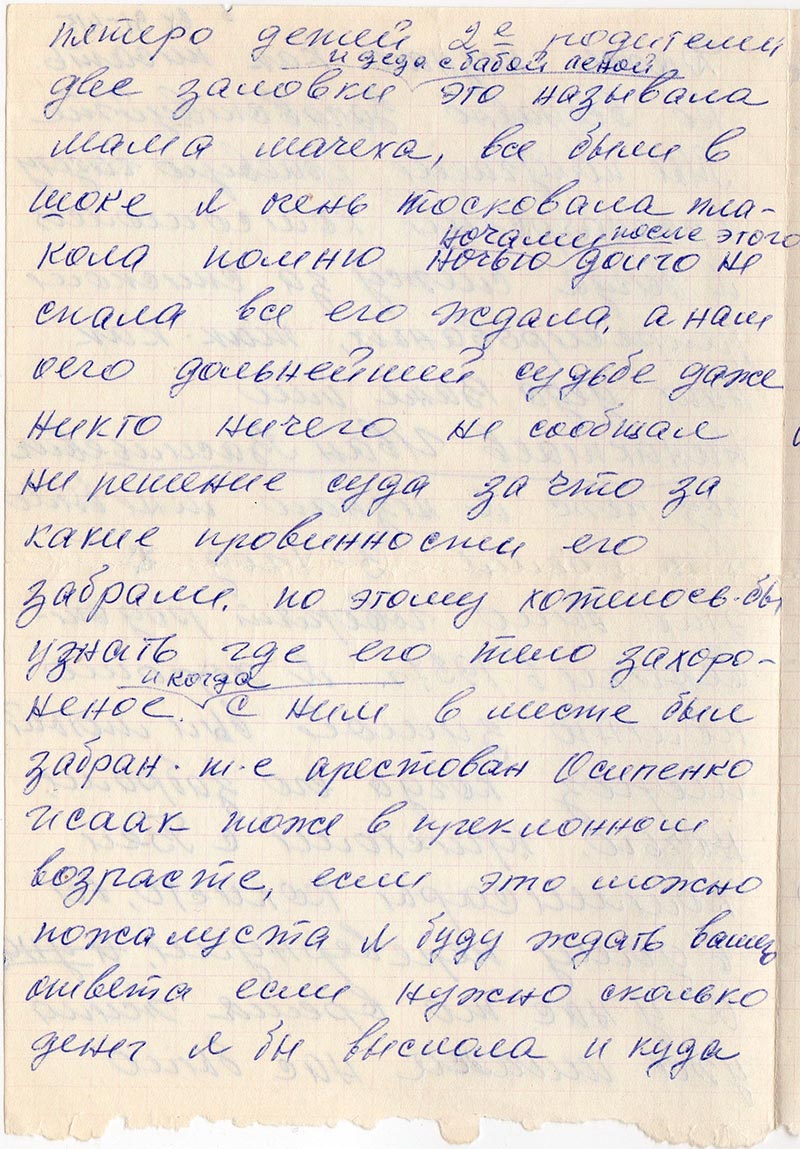 пятеро детей 2е родителей
и деда с бабой леной
две заловки это называла
мама мачеха, все были в
шоке я очень тосковала пла-
ночами после этого
кола помню ночью долго не
спала все его ждала, а нам
оего дольнейший судьбе даже
никто ничего не сообщал
ни решение суда за что за
какие провинности его
забрали. по этому хотелось-бы
узнать где его тело захоро-
и когда
неное. с ним в месте был
забран. т.е арестован Осипенко
Исаак тоже в преклонном
возрасте, если это можно
пожалуста я буду ждать вашего
ответа если нужно сколько
денег я бы выслола и куда